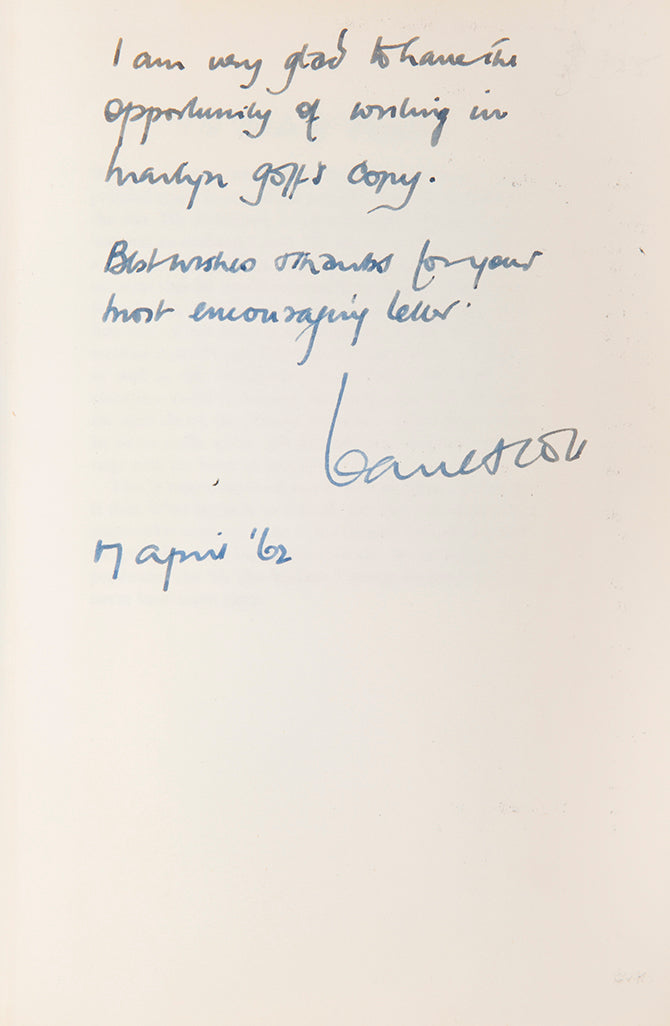 I am very glad to have the
opportunity of writing in
Martyn Goff's copy.
Best wishes & thanks for your
most encouraging letter.
Paul Scott
17 April '62